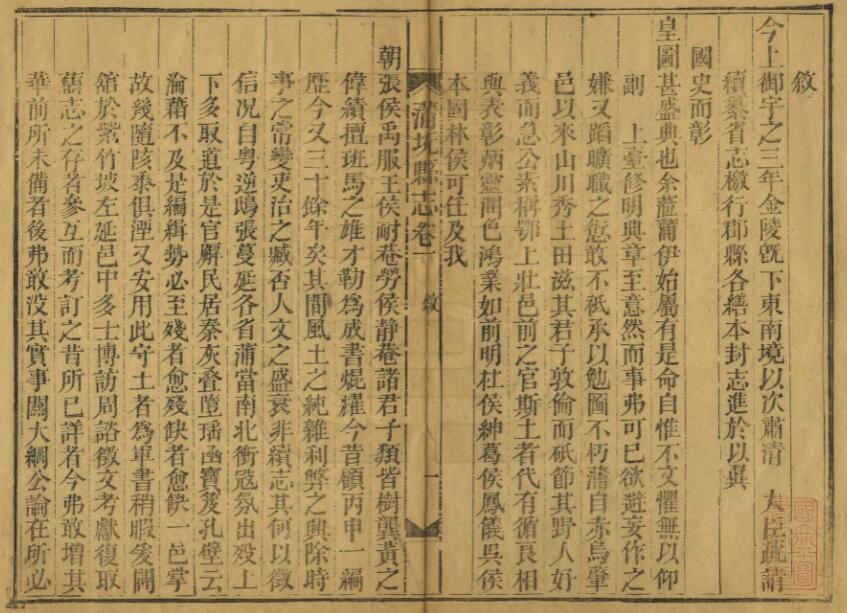 敘
今上御宇之三年金陵旣下東南境以次肅清　大臣疏請
續纂省志檄行郡縣各繕本封志進於以異
國史而彰
皇圖甚盛典也余蒞蒲伊始屬有是命自惟不文懼無以仰
副　上臺修明典章至意然而事弗可已欲避妄作之
嫌又蹈曠職之愆敢不祗承以勉圖不朽蒲自赤烏肇
邑以來山川秀土田滋其君子敦倫而砥節其野人好
義而急公素稱鄂上壯邑前之官斯土者代有循良相
與表彰炳靈潤色鴻業如前明杜侯紳葛侯鳳儀吳侯
本固林侯可任及我
蒲圻縣志卷一　敘　一
朝張侯禹服王侯耐菴勞侯靜菴諸君子類皆樹龔黃之
偉績擅班馬之雄才勒爲成書焜燿今昔顧丙申一編
歷今又三十餘年矣其間風土之純雜利弊之興除時
事之常變吏治之臧否人文之盛衰非續志其何以徵
信况自粵逆鴟張蔓延各省蒲當南北衝寇氛出歿上
下多取道於是官廨民居秦灰叠墮瑤函寶笈孔壁云
淪藉不及是編緝勢必至殘者愈殘缺者愈缺一邑掌
故幾隨陔黍俱湮又安用此守土者爲軍書稍暇爰闢
舘於紫竹坡左延邑中多士博訪周諮徵文考獻復取
舊志之存者參互而考訂之昔所已詳者今弗敢增其
華前所未備者後弗敢没其實事關大綱公論在所必